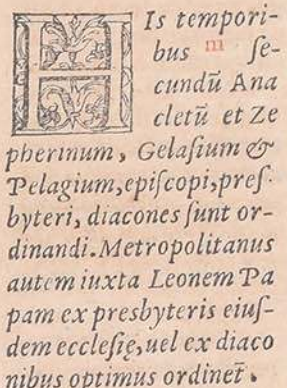 HIs tempori-
bus m ſe-
cundū Ana
cletū et Ze
pherinum, Gelaſium &
Pelagium, epiſcopi, preſ-
byteri, diacones ſunt or-
dinandi. Metropolitanus
autem iuxta Leonem Pa
pam ex presbyteris eiuſ-
dem eccleſię, uel ex diaco
nibus optimus ordinet̄.